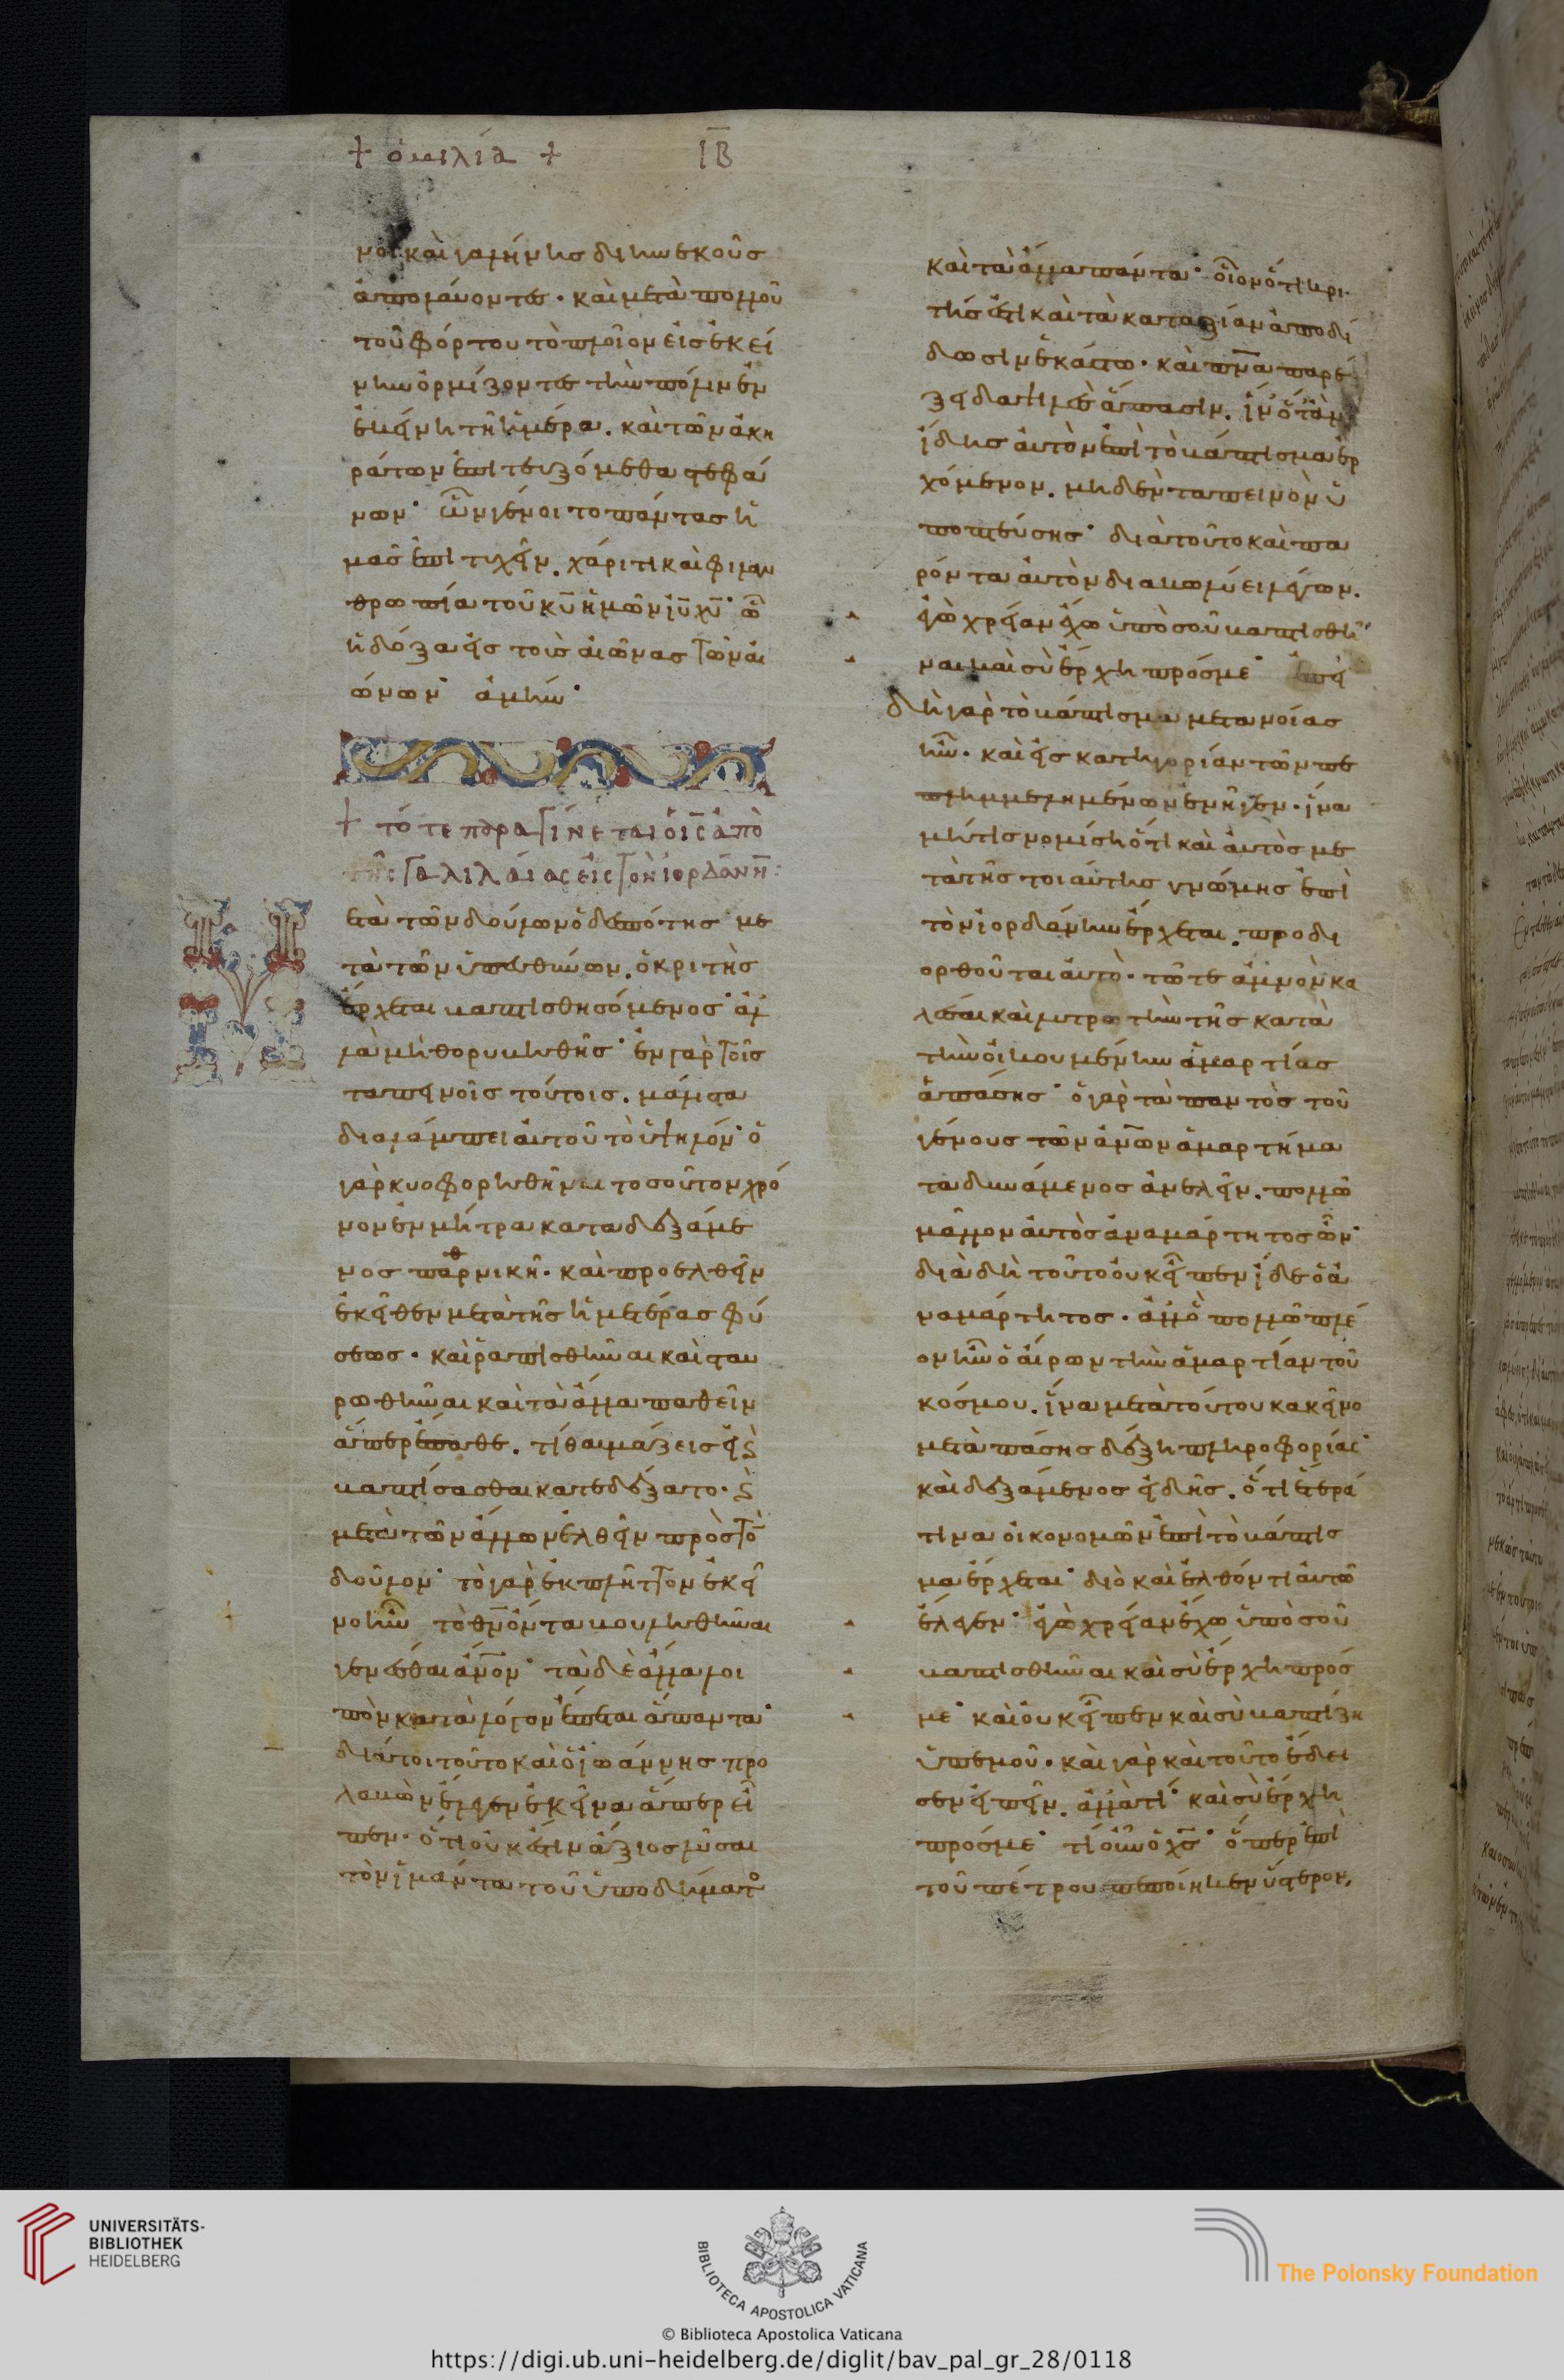 + ὁμιλία + ΙΒ
νοι· καὶ γαλήνης διηνεκοῦς
ἀπολαύοντες. καὶ μετὰ πολλοῦ
τοῦ φόρτου τὸ πλοῖον εἰς ἐκεί
νην ὁρμίζοντες τὴν πόλιν ἐν
ἐκείνη τῆ ἡμέρα. καὶ τῶν ἀκη
ράτων ἐπιτευξόμεθα στεφά
νων· ὧν γένοιτο πάντας ἡ
μᾶς ἐπιτυχεῖν. χάριτι καὶ φιλαν
θρωπία τοῦ κ̅υ̅ ἡμῶν ι̅υ̅ χ̅υ̅· ὧ
ἡ δόξα εἰς τοὺς αἰῶνας τῶν αἰ
ώνων· ἀμήν·
+ τότε παραγίνεται ὁ ι̅ς̅ ἀπὸ
τῆς γαλιλαίας εἰς τὸν ἰορδάνην:
Μ
ετὰ τῶν δούλων ὁ δεσπότης με
τὰ τῶν ὑπευθύνων. ὁ κριτὴς
ἔρχεται βαπτισθησόμενος· ἀλ
λὰ μὴ θορυβηθῆς· ἐν γὰρ τοῖς
ταπεινοῖς τούτοις. μάλιστα
διαλάμπει αὐτοῦ τὸ ὑψηλόν· ὁ
γὰρ κυοφορηθῆναι τοσοῦτον χρό
νον ἐν μήτρα καταδεξάμε
νος παρθνικῆ. καὶ προελθεῖν
ἐκεῖθεν μετὰ τῆς ἡμετέρας φύ
σεως. καὶ ῥαπισθῆναι καὶ σταυ
ρωθῆναι καὶ τὰ ἄλλα παθεῖν
ἅπερ ἔπαθε. τί θαυμάζεις εἰ ϗ
βαπτίσασθαι κατεδέξατο. ϗ
μετὰ τῶν ἄλλων ἐλθεῖν πρὸς τὸ̅
δοῦλον· τὸ γὰρ ἐκπλῆττον ἐκεῖ
νο ἦν τὸ θ̅ν̅ ὄντα βουληθῆναι
γενέσθαι ἄ̅ν̅ο̅ν̅· τὰ δὲ ἄλλα λοι
πὸν κατὰ λόγον ἕπεται ἅπαντα·
διάτοι τοῦτο καὶ ὁ ἰωάννης προ
λαβὼν ἔλεγεν ἐκεῖνα ἅπερ εἶ
πεν. ὅτι οὐκ ἔστιν ἄξιος λῦσαι
τὸν ἱμάντα τοῦ ὑποδήματο
καὶ τὰ ἄλλα πάντα· οἷον ὅτι κρι
τής ἐστι καὶ τὰ κατ' ἀξίαν ἀποδί
δωσιν ἑκάστω. καὶ π̅ν̅α̅ παρέ
ξει δαψιλὲς ἅπασιν. ἵν' ὅταν
ἴδης αὐτὸν ἐπὶ τὸ βάπτισμα ἐρ
χόμενον. μηδὲν ταπεινὸν ὑ
ποπτεύσης· διὰ τοῦτο καὶ πα
ρόντα αὐτὸν διακωλύει λέγων.
ἐγὼ χρείαν ἔχω ὑπὸ σοῦ βαπτισθῆ
ναι καὶ σὺ ἔρχη πρός με· ἐπει
δὴ γὰρ τὸ βάπτισμα μετανοίας
ἦν. καὶ εἰς κατηγορίαν τῶν πε
πλημμελημένων ἐνῆγεν. ἵνα
μή τις νομίση ὅτι καὶ αὐτὸς με
τὰ τῆς τοιαύτης γνώμης ἐπὶ
τὸν ἰορδάνην ἔρχεται. προδι
ορθοῦται αὐτὸ. τῶ τε ἀμνὸν κα
λέσαι καὶ λυτρωτὴν τῆς κατὰ
τὴν οἰκουμένην ἁμαρτίας
ἁπάσης· ὁ γὰρ τὰ παντὸς τοῦ
γένους τῶν ἀ̅ν̅ω̅ν̅ ἁμαρτήμα
τα δυνάμενος ἀνελεῖν. πολλῶ
μᾶλλον αὐτὸς ἀναμάρτητος ὢν·
διὰ δὴ τοῦτο οὐκ εἶπεν ἴδε ὁ ἀ
ναμάρτητος. ἀλλ' ὃ πολλῶ πλέ
ον ἦν ὁ αἴρων τὴν ἁμαρτίαν τοῦ
κόσμου. ἵνα μετὰ τούτου κἀκεῖνο
μετὰ πάσης δέξη πληροφορίας·
καὶ δεξάμενος εἰδῆς. ὅτι ἕτερά
τινα οἰκονομῶν ἐπὶ τὸ βάπτισ
μα ἔρχεται· διὸ καὶ ἐλθόντι αὐτῶ
ἔλεγεν· ἐγὼ χρείαν ἔχω ὑπὸ σοῦ
βαπτισθῆναι καὶ σὺ ἔρχη πρός
με· καὶ οὐκ εἶπεν καὶ σὺ βαπτίζη
ὑπ' ἐμοῦ. καὶ γὰρ καὶ τοῦτο ἔδει
σεν εἰπεῖν. ἀλλὰ τί· καὶ σὺ ἔρχη
πρός με· τί οὖν ὁ χ̅ς̅· ὅπερ ἐπὶ
τοῦ πέτρου πεποίηκεν ὕστερον,
UNIVERSITÄTS-
BIBLIOTHEK
HEIDELBERG
BIBLIOTECA APOSTOLICA VATICANA
The Polonsky Foundation
© Biblioteca Apostolica Vaticana
https://digi.ub.uni-heidelberg.de/diglit/bav_pal_gr_28/0118